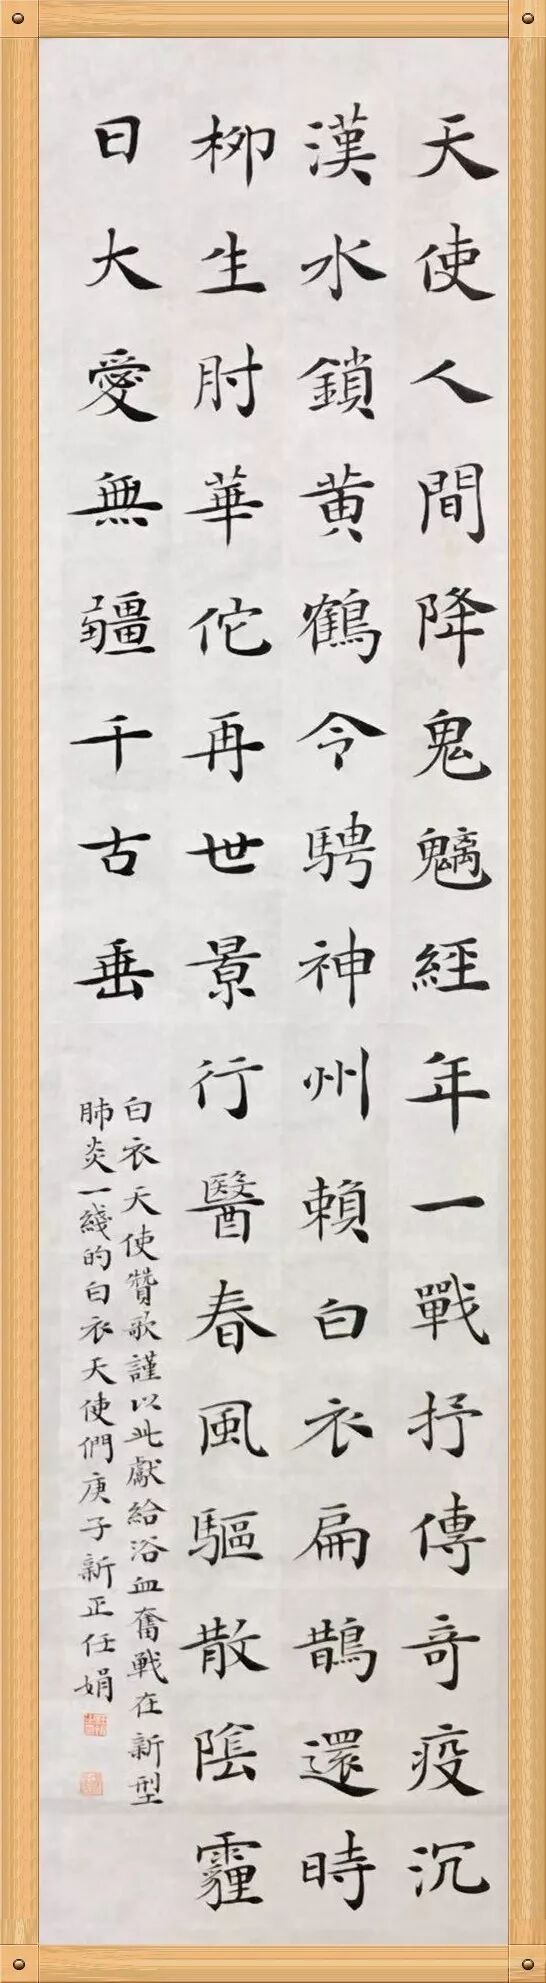 天使人間降鬼魑經年一戰抒傳奇疫沉
漢水鎖黄鶴令騁神州賴白衣扁鵲還時
柳生肘華佗再世景行醫春風驅散陰霾
日大愛無疆千古垂
白衣天使贊歌謹以此獻給浴血奮戰在新型
肺炎一綫的白衣天使們庚子新正任娟